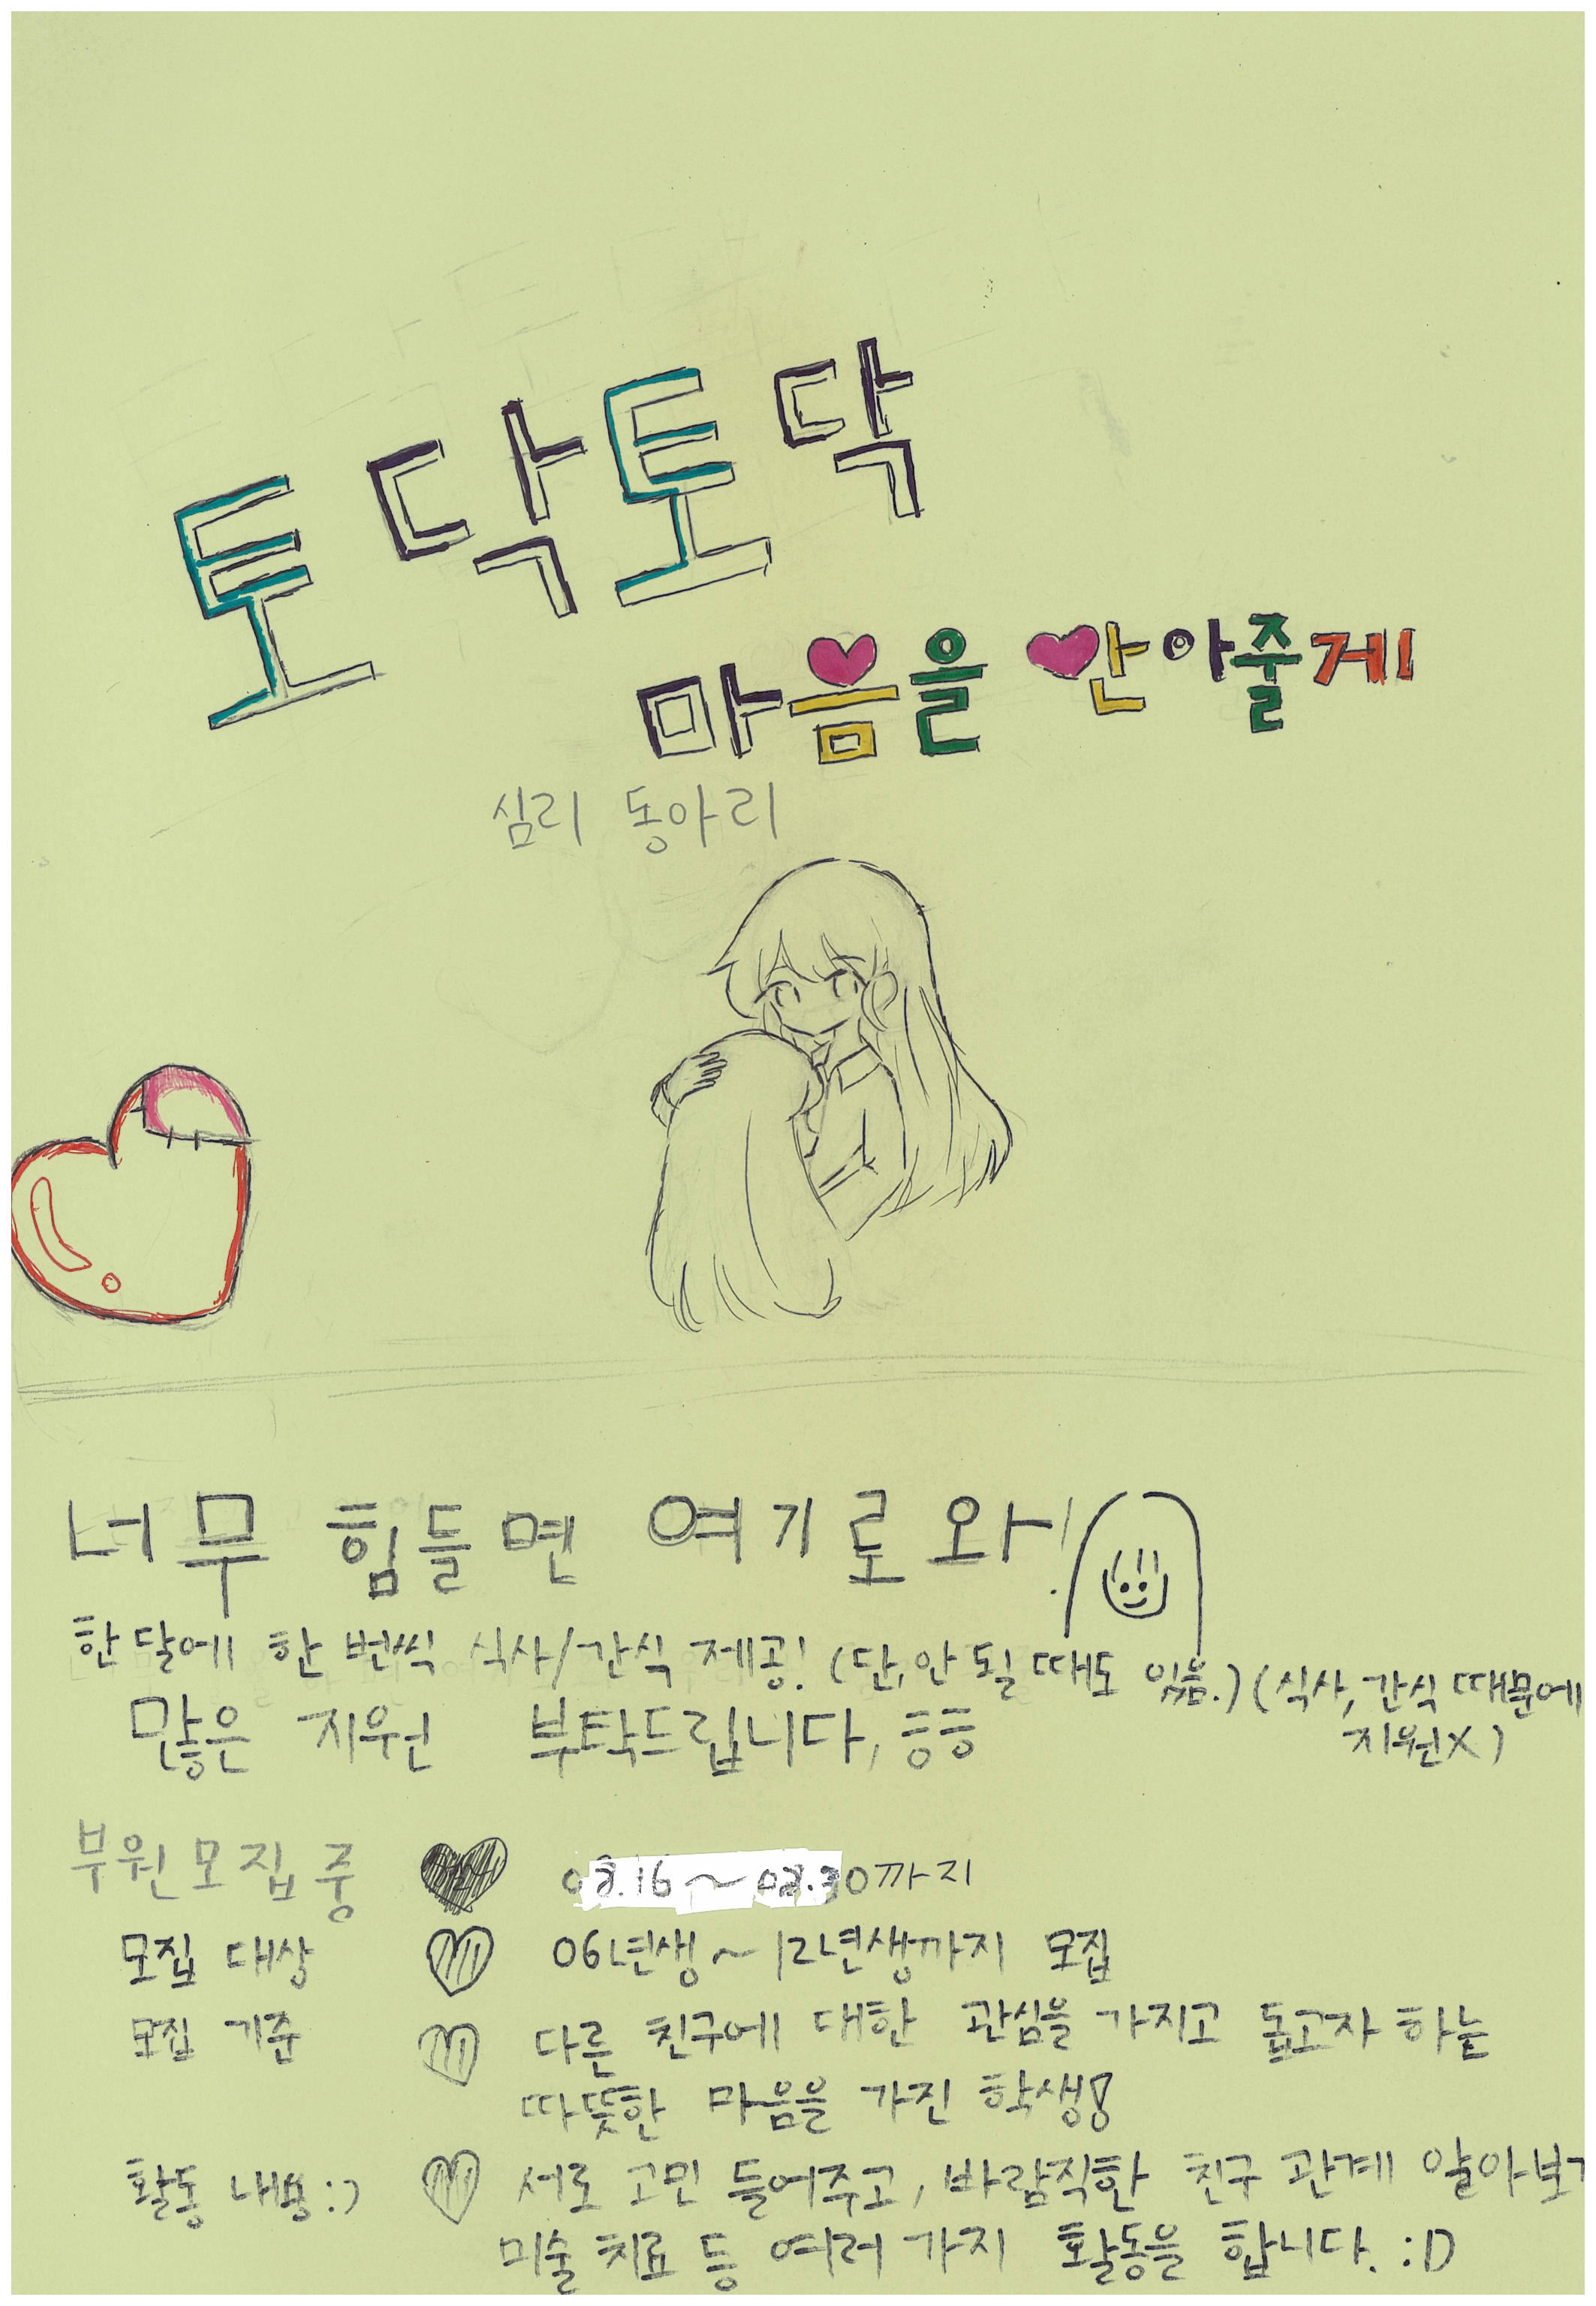 토닥토닥
마음을 안아줄게
심리 동아리
너무 힘들면 여기로 와!
한 달에 한 번씩 식사/간식 제공! (단, 안 될 때도 있음.) (식사, 간식 때문에
지원X)
많은 지원 부탁드립니다, ㅎㅎ
부원 모집 중 08.16~08.30까지
모집 대상 06년생~12년생까지 모집
모집 기준 다른 친구에 대한 관심을 가지고 돕고자 하는
따뜻한 마음을 가진 학생!
활동 내용:) 서로 고민 들어주고, 바람직한 친구 관계 알아보기
미술 치료 등 여러 가지 활동을 합니다. :D